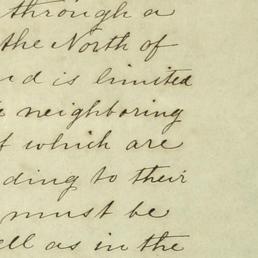 through a
the North of
is limited
neighboring
which are
ding to their
must be
ell as in the